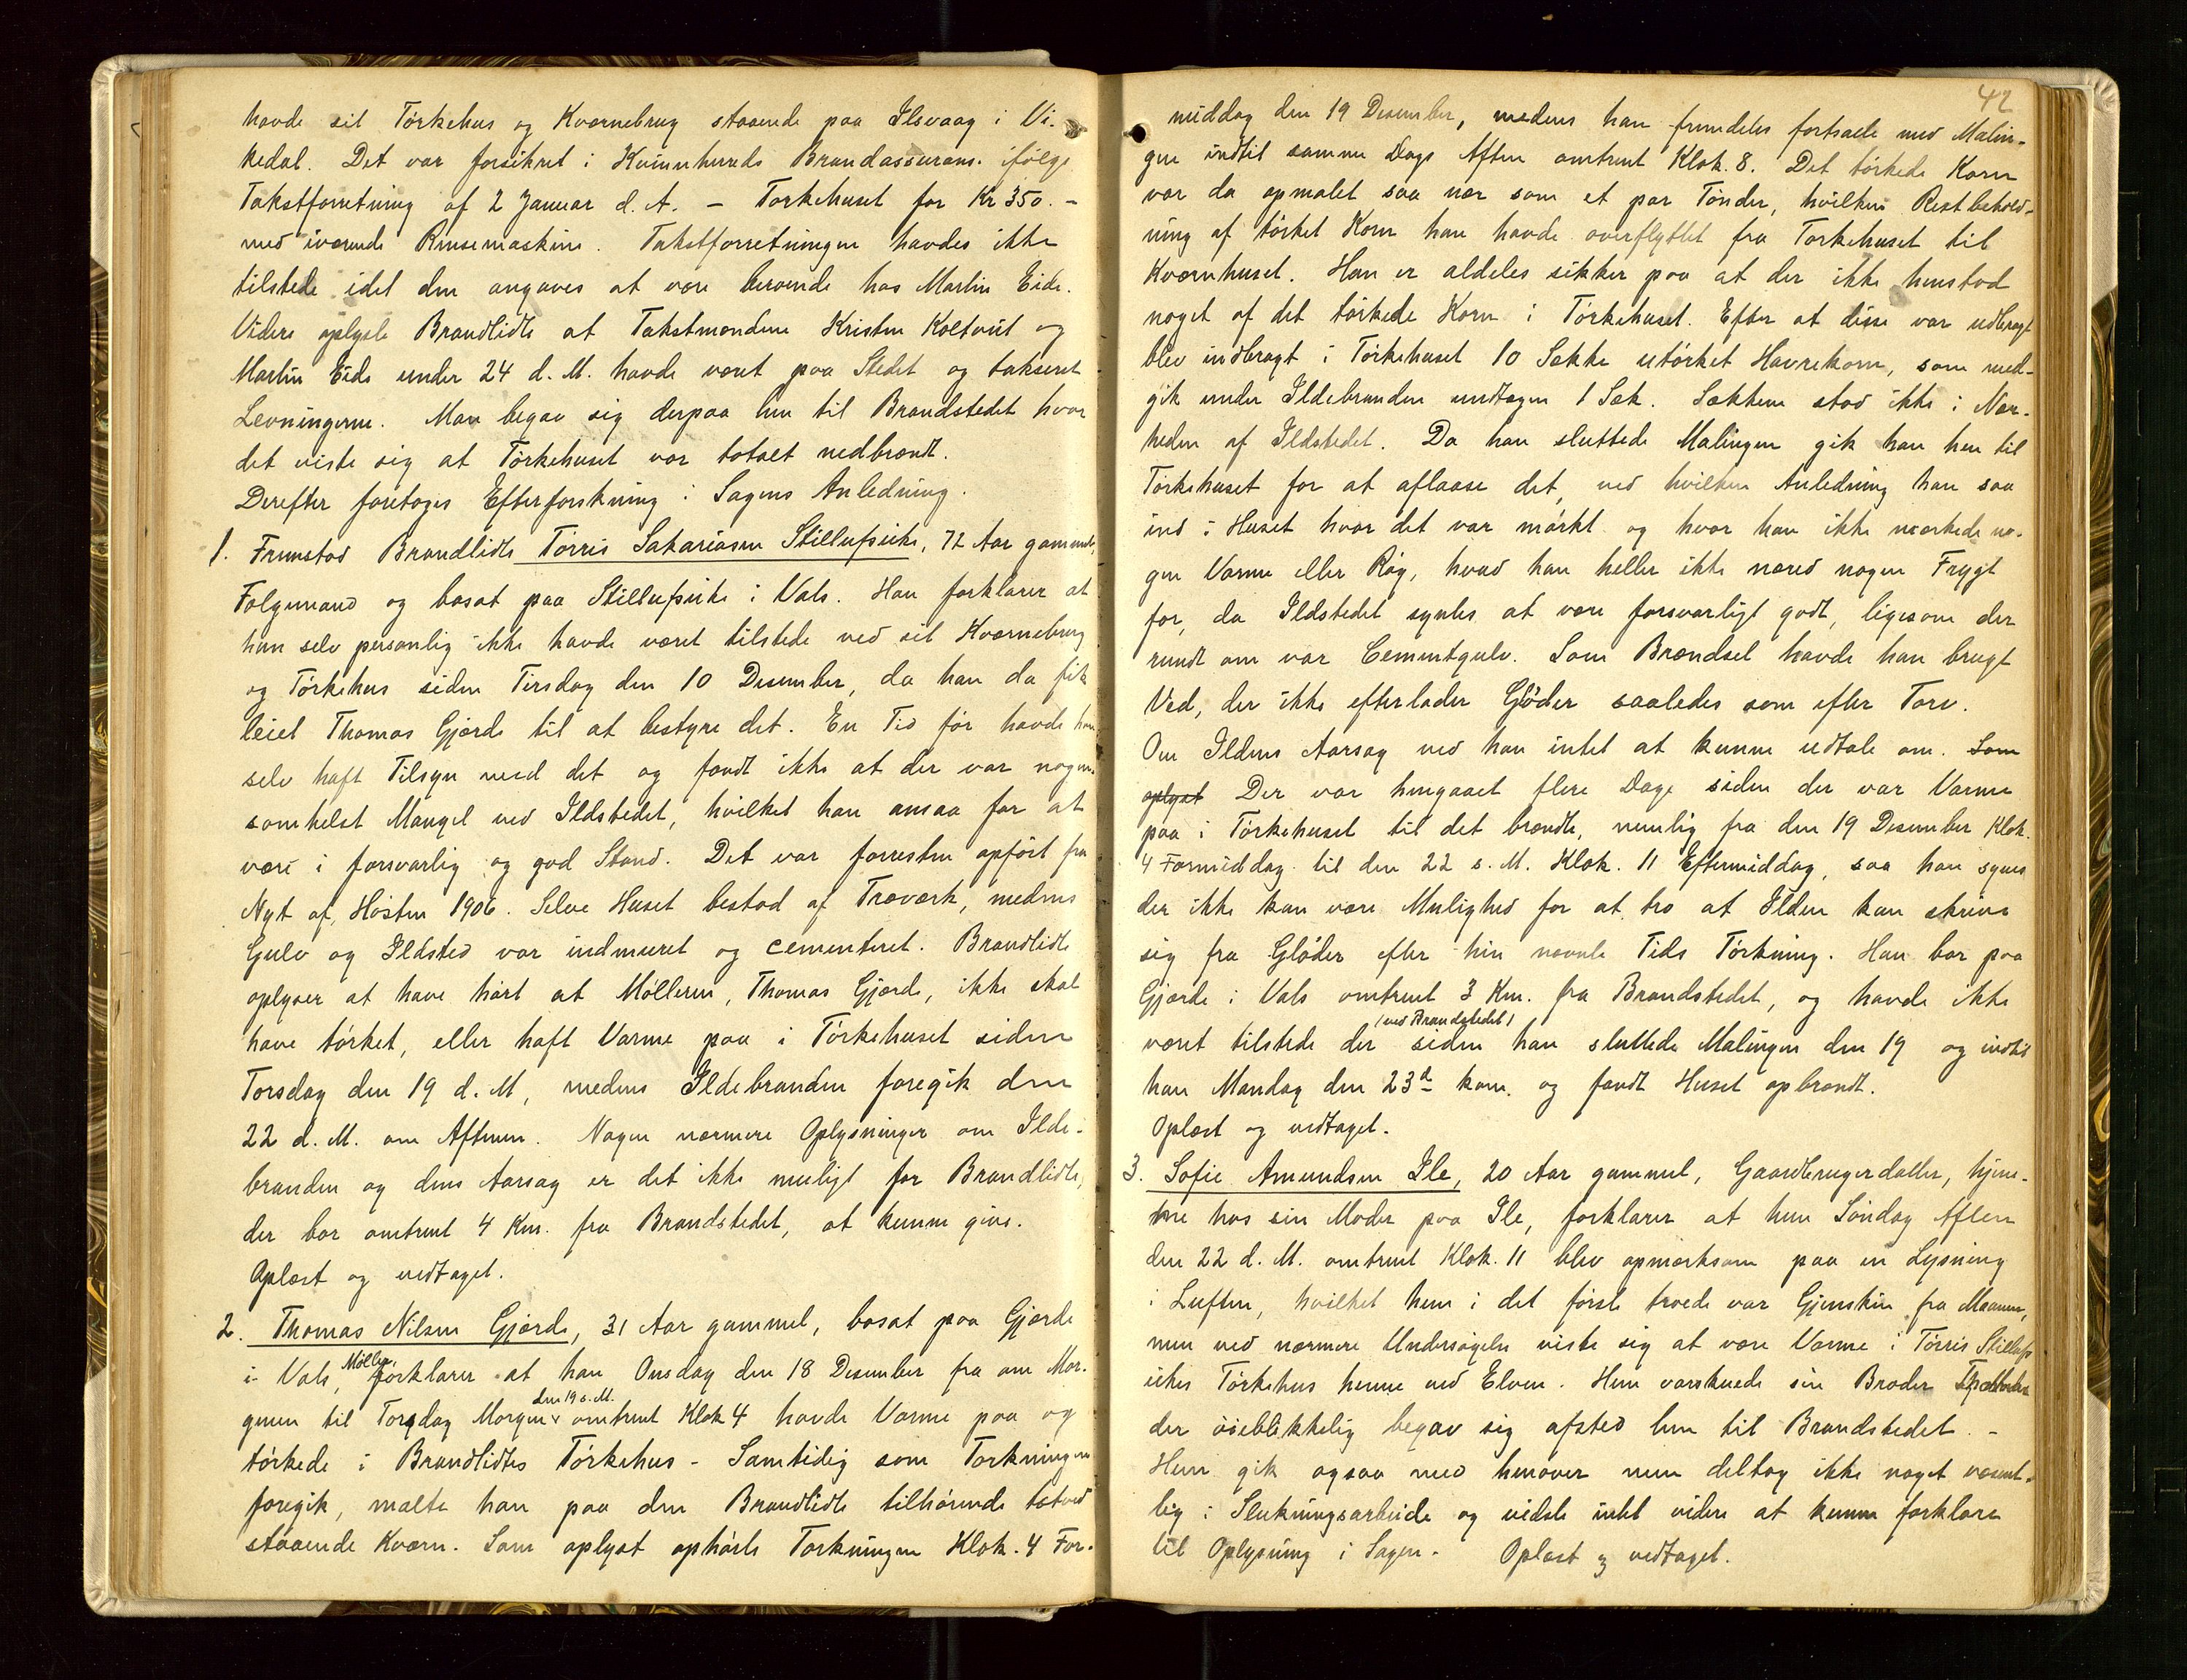 havde sit Tørkehus og Kvernebrug staaende paa Ilsvaag i Vi-
kedal. Det var forsikret i Kvinnherreds Brandassurans. ifølge
Takstforretning af 2 Januar d. A. – Tørkehuset for Kr 350.-
med iværende Rensemaskine. Takstforretningen havdes ikke
tilstede idet den angaves at være beroende hos Martin Eide.
Videre oplyste Brandlidte at Takstmændene Kristen Koltveit og
Martin Eide under 24 d. M. havde været paa Stedet og takseret
Levningerne. Man begav sig derpaa hen til Brandstedet hvor
det viste sig at Tørkehuset var totalt nedbrændt.
Derefter foretoges Efterforskning i Sagens Anledning.
1. Fremstod Brandlidte Tørris Sakariasen Stillufseike, 72 Aar gammel,
Følgemand og bosat paa Stillufseike i Vats. Han forklarer at
han selv personlig ikke havde været tilstede ved sit Kvernebrug
og Tørkehus siden Tirsdag den 10 Desember, da han da fik
leiet Thomas Gjærde til at bestyre det. En Tid før havde han
selv haft Tilsyn med det og fandt ikke at der var nogen-
somhelst Mangel ved Ildstedet, hvilket han ansaa for at
være i forsvarlig og god Stand. Det var forresten opført fra
Nyt af, Høsten 1906. Selve Huset bestod af Træværk, medens
Gulv og Ildsted var indmuret og cementeret. Brandlidte
oplyser at have hørt at Mølleren, Thomas Gjærde, ikke skal
have tørket, eller haft Varme paa i Tørkehuset siden
Torsdag den 19 d. M, medens Ildebranden foregik den
22 d. M. om Aftenen. Nogen nærmere Oplysninger om Ilde-
branden og dens Aarsag er det ikke muligt for Brandlidte,
der bor omtrent 4 Km. fra Brandstedet, at kunne give.
Oplæst og vedtaget.
2. Thomas Nilsen Gjærde, 31 Aar gammel, bosat paa Gjærde
i Vats, Møller, forklarer at han Onsdag den 18 Desember fra om Mor-
genen til Torsdag Morgen den 19 s. M. omtrent Klok 4 havde Varme paa og
tørkede i Brandlidtes Tørkehus - Samtidig som Tørkningen
foregik, malte han paa den Brandlidte tilhørende tætved
staaende Kværn. Som oplyst ophørte Tørkningen Klok. 4 For-
42
middag den 19 Desember, medens han fremdeles fortsatte med Malin-
gen indtil samme Dags Aften omtrent Klok. 8. Det tørkede Korn
var da opmalet saa nær som et par Tønder, hvilken Restbehold-
ning af tørket Korn han havde overflyttet fra Tørkehuset til
Kværnhuset. Han er aldeles sikker paa at der ikke henstod
noget af det tørkede Korn i Tørkehuset. Efter at disse var udbragt
blev indbragt i Tørkehuset 10 Sække utørket Havrekorn, som med-
gik under Ildebranden undtagen 1 Sæk. Sækkene stod ikke i Nær-
heden af Ildstedet. Da han sluttede Malingen gik han hen til
Tørkehuset for at aflaase det, ved hvilken Anledning han saa
ind i Huset hvor det var mørkt og hvor han ikke mærkede no-
gen Varme eller Røg, hvad han heller ikke næred nogen Frygt
for, da Ildstedet syntes at være forsvarligt godt, ligesom der
rundt om var Cementgulv. Som Brændsel havde han brugt
Ved, der ikke efterlader Gløder saaledes som efter Torv.
Om Ildens Aarsag ved han intet at kunne udtale om. Som
oplyst Der var hengaaet flere Dage siden der var Varme
paa i Tørkehuset til det brændte, nemlig fra den 19 Desember Klok.
4 Formiddag til den 22 s. M. Klok. 11 Eftermiddag, saa han synes
der ikke kan være Mulighed for at tro at Ilden kan skrive
sig fra Gløder efter hin nævnte Tids Tørkning. Han bor paa
Gjærde i Vats omtrent 3 Km. fra Brandstedet, og havde ikke
været tilstede der (ved Brandstedet) siden han sluttede Malingen den 19 og indtil
han Mandag den 23d kom og fandt Huset opbrændt.
Oplæst og vedtaget.
3. Sofie Amundsen Ile, 20 Aar gammel, Gaardbrugerdatter, hjem-
me hos sin Moder paa Ile, forklarer at hun Søndag Aften
den 22 d. M. omtrent Klok. 11 blev opmærksom paa en Lysning
i Luften, hvilket hun i det første troede var Gjenskin fra Maanen,
men ved nærmere Undersøgelse viste sig at være Varme i Tørris Stillufs
eikes Tørkehus henne ved Elven. Hun varskuede sin Broder
der øieblikkelig begav sig afsted hen til Brandstedet. -
Hun gik ogsaa med henover men deltog ikke noget væsent-
lig i Slukningsarbeide og vidste intet videre at kunne forklare
til Oplysning i Sagen. Oplæst og vedtaget.